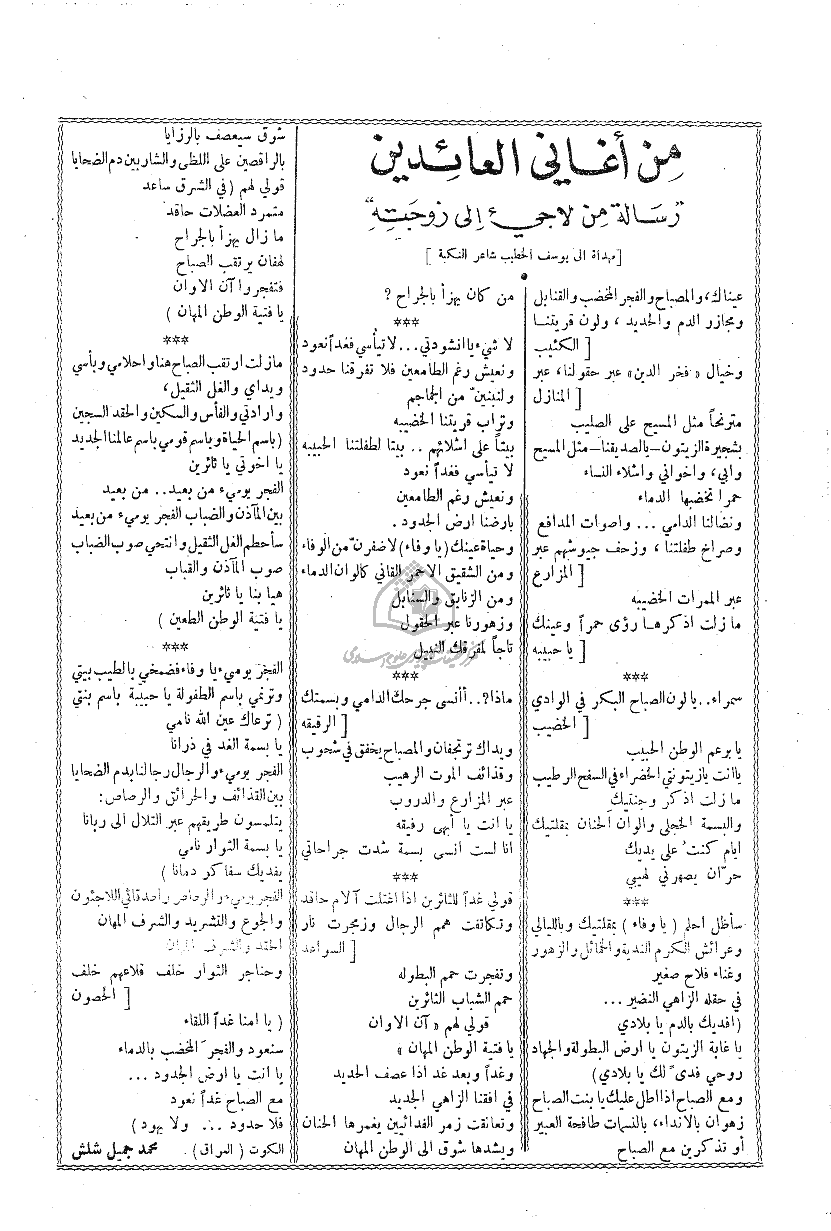 من أغاني العائدين
"رسالة من لاجيء إلى زوجته"
[ مهداة الى يوسف الخطيب شاعر النكبة ]
عيناك، والمصباح والفجر المخضب والقنابل
ومجازر الدم والحديد ، ولون قريتنا
[ الكئيب
وخيال « فخر الدين» عبر حقولنا، عبر
[ المنازل
مترنحاً مثل المسيح على الصليب
بشجيرة الزيتون–بالصديقنا–مثل المسيح
وابي، واخواني واشلاء النساء
حمرا تخضبها الدماء
ونضالنا الدامي ... واصوات المدافع
وصراخ طفلتنا ، وزحف جيوشهم عبر
[ المزارع
عبر الممرات الخضيبه
ما زلت اذكرها رؤى حمراً وعينك
[ يا حبيبه
***
سمراء.. يا لون الصباح البكر في الوادي
[ الخضيب
يا برعم الوطن الحبيب
يا انت يا زيتونتي الخضراء في السفح الرطيب
ما زلت اذكر وجنتيك
والبسمة الخجلى والوان الحنان بمقلتيك
ايام كنت على يديك
حرّان يصهرني لهيبي
***
سأظل احلم ( يا وفاء ) بمقلتيك وبالليالي
وعرائش الكرم الندية والخمائل والزهور
وغناء فلاح صغير
في حقله الزاهي النضير ...
(افديك بالدم يا بلادي
يا غابة الزيتون يا ارض البطولة والجهاد
روحي فدىً لك يا بلادي)
ومع الصباح اذا اطل عليك يا بنت الصباح
زهوان بالانداء، بالنسمات طافحة العبير
أو تذكرين مع الصباح
من كان يهزأ بالجراح ?
***
لا شيء يا انشودتي... لا تيأسي فغداً نعود
ونعيش رغم الطامعين فلا تفرقنا حدود
ولنبنينّ من الجماجم
وتراب قريتنا الخضيبه
بيتاً على اشلائهم .. بيتا لطفلتنا الحبيبه
لا تيأسي فغداً نعود
ونعيش رغم الطامعين
بارضنا ارض الجدود .
وحياة عينك (يا وفاء) لاضفرنّ من الوفاء
ومن الشقيق الاحمر القاني كالوان الدماء
ومن الزنابق والسنابل
وزهورنا عبر الحقول
تاجاً لمفرقك النبيل
***
ماذا?.. أأنسى جرحك الدامي وبسمتك
[ الرقيقه
ويداك ترتجفان والمصباح يخفق في شحوب
وقذائف الموت الرهيب
عبر المزارع والدروب
يا انت يا أبهى رفيقه
انا لست انسى بسمة شدت جراحاتي
***
قولي غداً للثائرين اذا اغتلت آلام حاقد
وتكاتفت همم الرجال وزمجرت نار
[ السواعد
وتفجرت حمم البطوله
حمم الشباب الثائرين
قولي لهم « آن الاوان
يا فتية الوطن المهان »
وغداً وبعد غد اذا عصف الحديد
في افقنا الزاهي الجديد
وتعانقت زمر الفدائيين يغمرها الحنان
ويشدها شوق الى الوطن المهان
شوق سيعصف بالرزايا
بالراقصين على اللظى والشاربين دم الضحايا
قولي لهم ( في الشرق ساعد
متمرد العضلات حاقد
ما زال يهزأ بالجراح
لهفان يرتقب الصباح
فتفجروا آن الاوان
يا فتية الوطن المهان )
***
ما زلت ارتقب الصباح هنا واحلامي وبأسي
ويداي والغل الثقيل،
وارادتي والفأس والسكين والحقد السجين
(باسم الحياة وباسم قومي باسم عالمنا الجديد
يا اخوتي يا ثائرين
الفجر يوميء من بعيد.. من بعيد
بين المآذن والضباب الفجر يوميء من بعيد
سأحطم الغل الثقيل وانتحي صوب الضباب
صوب المآذن والقباب
هيا بنا يا ثائرين
يا فتية الوطن الطعين )
***
الفجر يوميء يا وفاء فضمخي بالطيب بيتي
وترنمي باسم الطفولة يا حبيبة باسم بنتي
( ترعاك عين الله نامي
يا بسمة الغد في ذرانا
الفجر يوميء والرجال رجالنا بدم الضحايا
بين القذائف والحرائق والرصاص:
يتلمسون طريقهم عبر التلال الى ربانا
يا بسمة الثوار نامي
يفديك سفاكو دمانا )
الفجر يوميء والرصاص واصدقائي اللاجئون
والجوع والتشريد والشرف المهان
الحقد والشرف المهان
وحناجر الثوار خلف قلاعهم خلف
[ الحصون
( يا امنا غداً اللقاء
سنعود والفجر المخضب بالدماء
يا انت يا ارض الجدود ...
مع الصباح غداً نعود
فلا حدود ... ولا يهود )
الكوت ( العراق ) . محمد جميل شلش